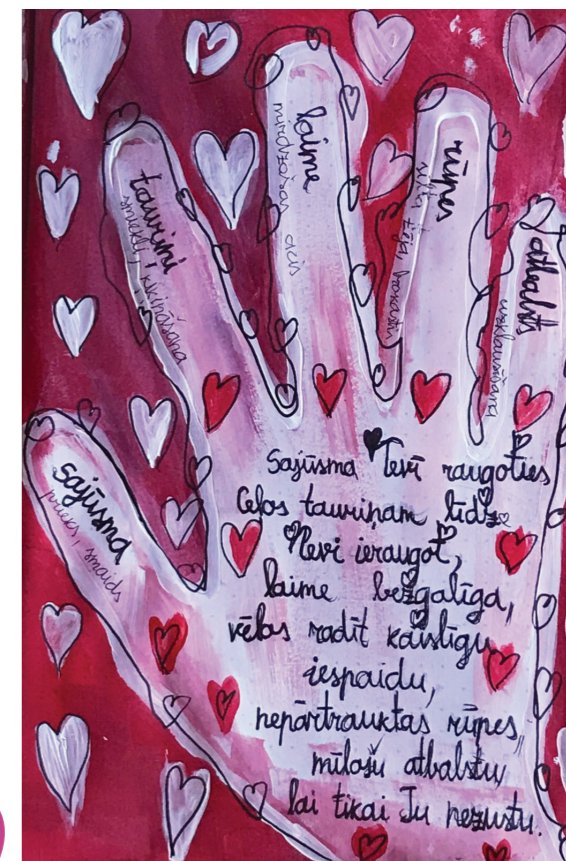 sajūsma
prieks, smaids
tauriņi
smiekli, kņudināšana
laime
mirdzošas acis
rūpes
silta tēja, brokastis
atbalsts
uzklausīšana
Sajūsma Tevī raugoties
Ceļos tauriņam līdz
Tevi ieraugot,
laime bezgalīga,
vēlos radīt kaislīgu
iespaidu,
nepārtrauktas rūpes,
mīlošu atbalstu,
lai tikai Tu nezustu.